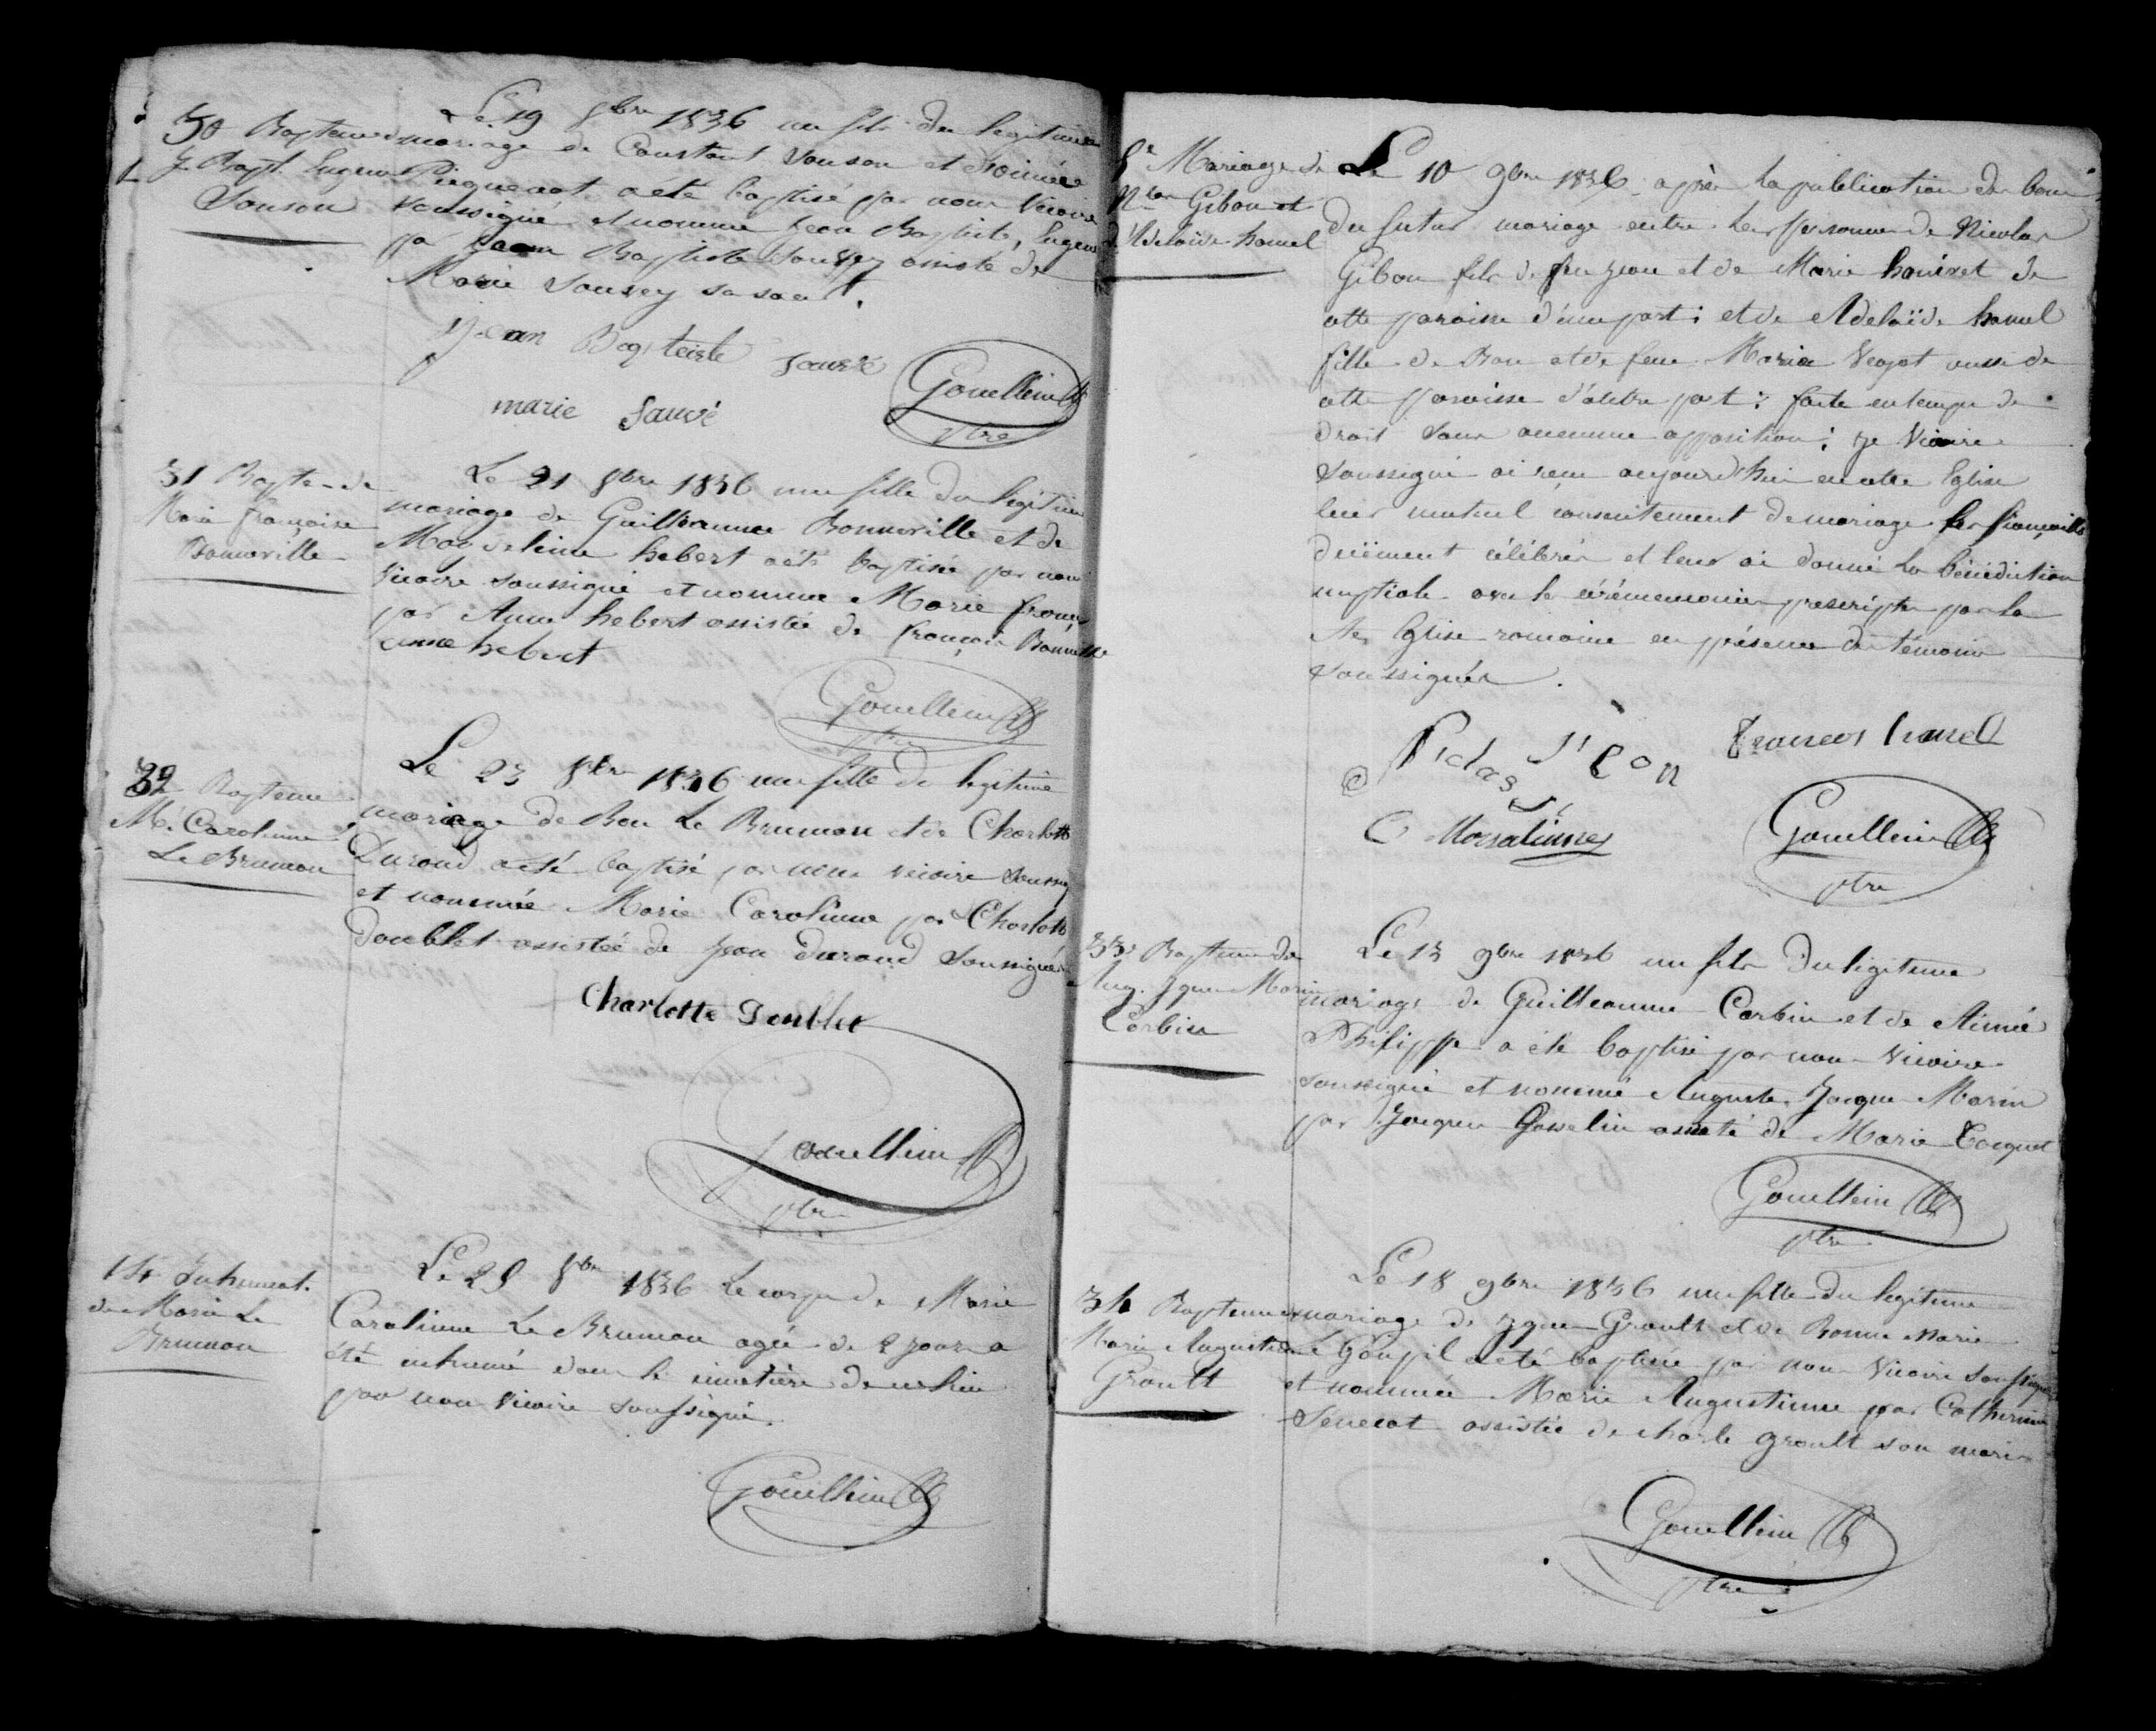 30 Bapteme de
J. Bapt. Eugene
Sanson
Le 19 8bre 1836 un fils du legitime
mariage de Constant Sanson et Aimée
Picquenot a été baptisé par nous Vicaire
soussigné et nommé Jean Baptiste, Eugene
par Jean Baptiste Sauvey assisté de
Marie Sauvey sa soeur.
Jean Bapteiste Sauvé
marie Sauvé
Gouellain
ptre
31 Bapte de
Marie françoise
Bonneville
Le 21 8bre 1836 une fille du legitime
mariage de Guillaume Bonneville et de
Magdeleine hebert a été baptisée par nous
Vicaire soussigné et nommée Marie
par Anne hebert assistée de françois
anne hebert
Gouellain
ptre
32 Bapteme
Mie Carolinne
Le Brumon
Le 23 8bre 1836 une fille du legitime
mariage de Bon Le Brumon et de Charlotte
Durand a été baptisé par nous vicaire
et nommée Marie Carolinne par Charlotte
Doublet assistée de Jean Durand soussignés
Charlotte Doublet
Gouellain
ptre
14 Inhumat.
de Marie Le
Brumon
Le 25 8bre 1836 Le corps de Marie
Carolinne Le Brumon agée de 2 jours a
été inhumé dans le cimetière de ce lieu
par nous Vicaire soussigné.
Gouellain
8e Mariage de
Nlas Gibon et
d'Adelaïde hamel
Le 10 9bre 1836 après la publication des bans
du futur mariage entre les personnes de Nicolas
Gibon fils de feu Jean et de Marie de
cette paroisse d'une part; et de Adelaïde hamel
fille de Bon et de feue Marie aussi de
cette paroisse d'autre part; faite en temps de
droit sans aucunne opposition; je Vicaire
soussigné ai reçu aujourd'hui en cette Eglise
leur mutuel consentement de mariage les fiançailles
duëment célébrées et leur ai donné la bénédiction
nuptiale avec les cérémonies prescriptes par la
Ste Eglise romaine en présence des témoins
soussignés.
hamel
Gouellain
ptre
33e Bapteme de
Aug. Jques Marin
Corbin
Le 13 9bre 1836 un fils du legitime
mariage de Guilleaume Corbin et de Aimée
Philippe a été baptisé par nous Vicaire
soussigné et nommé Auguste, Jacques Marin
par Jacques Gosselin assisté de Marie
Gouellain
ptre
34 Bapteme de
Marie Augustinne
Groult
Le 18 9bre 1836 une fille du legitime
mariage de Jques Groult et de Bonne Marie
Le Goupil a été baptisée par nous Vicaire soussigné
et nommée Marie Augustinne par Catherinne
Senecat assistée de charle groult son mari
Gouellain
ptre